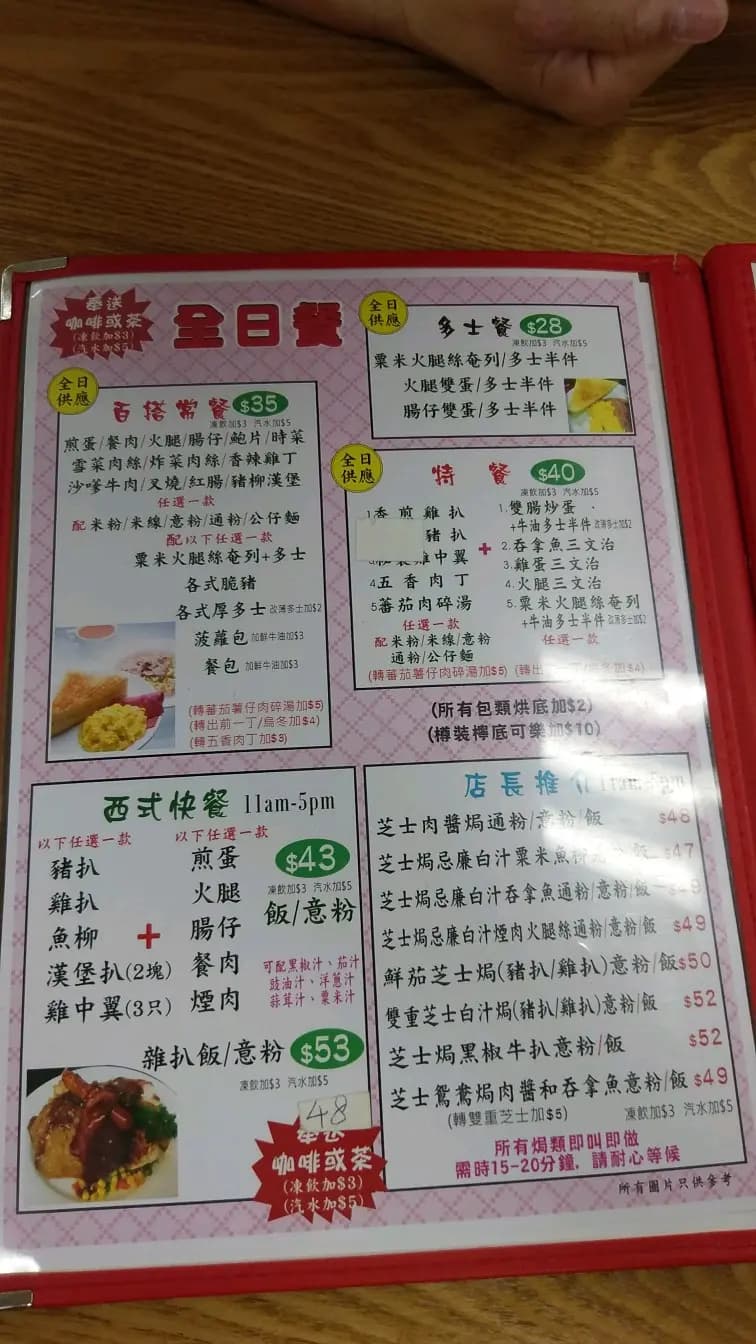 奉送
咖啡或茶
(凍飲加$3)
(汽水加$5)
全日餐
全日
供應
百搭常餐 $35
凍飲加$3 汽水加$5
煎蛋/餐肉/火腿/腸仔/鮑片/時菜
雪菜肉絲/炸菜肉絲/香辣雞丁
沙嗲牛肉/叉燒/紅腸/豬柳漢堡
任選一款
配米粉/米線/意粉/通粉/公仔麵
配以下任選一款
粟米火腿絲奄列+多士
各式脆豬
各式厚多士 改薄多士加$2
菠蘿包 加鮮牛油加$3
餐包 加鮮牛油加$3
(轉蕃茄薯仔肉碎湯加$5)
(轉出前一丁/烏冬加$4)
(轉五香肉丁加$3)
全日
供應
多士餐 $28
凍飲加$3 汽水加$5
粟米火腿絲奄列/多士半件
火腿雙蛋/多士半件
腸仔雙蛋/多士半件
全日
供應
特餐 $40
凍飲加$3 汽水加$5
1香煎雞扒
豬扒
雞中翼
4五香肉丁
5蕃茄肉碎湯
任選一款
配米粉/米線/意粉
通粉/公仔麵
+
1.雙腸炒蛋
+牛油多士半件 改薄多士加$2
2.吞拿魚三文治
3.雞蛋三文治
4.火腿三文治
5.粟米火腿絲奄列
+牛油多士半件 改薄多士加$2
任選一款
(轉蕃茄薯仔肉碎湯加$5) (轉出前一丁/烏冬加$4)
(所有包類烘底加$2)
(樽裝檸底可樂加$10)
西式快餐 11am-5pm
以下任選一款
豬扒
雞扒
魚柳
漢堡扒(2塊)
雞中翼(3只)
+
以下任選一款
煎蛋
火腿
腸仔
餐肉
煙肉
$43
凍飲加$3 汽水加$5
飯/意粉
可配黑椒汁、茄汁
豉油汁、洋蔥汁
蒜茸汁、粟米汁
雜扒飯/意粉 $53
凍飲加$3 汽水加$5
48
奉送
咖啡或茶
(凍飲加$3)
(汽水加$5)
店長推介
芝士肉醬焗通粉/意粉/飯 $48
芝士焗忌廉白汁粟米魚柳 飯 $47
芝士焗忌廉白汁吞拿魚通粉/意粉/飯
芝士焗忌廉白汁煙肉火腿絲通粉/意粉/飯 $49
鮮茄芝士焗(豬扒/雞扒)意粉/飯 $50
雙重芝士白汁焗(豬扒/雞扒)意粉/飯 $52
芝士焗黑椒牛扒意粉/飯 $52
芝士鴛鴦焗肉醬和吞拿魚意粉/飯 $49
(轉雙重芝士加$5) 凍飲加$3 汽水加$5
所有焗類即叫即做
需時15-20分鐘，請耐心等候
所有圖片只供參考